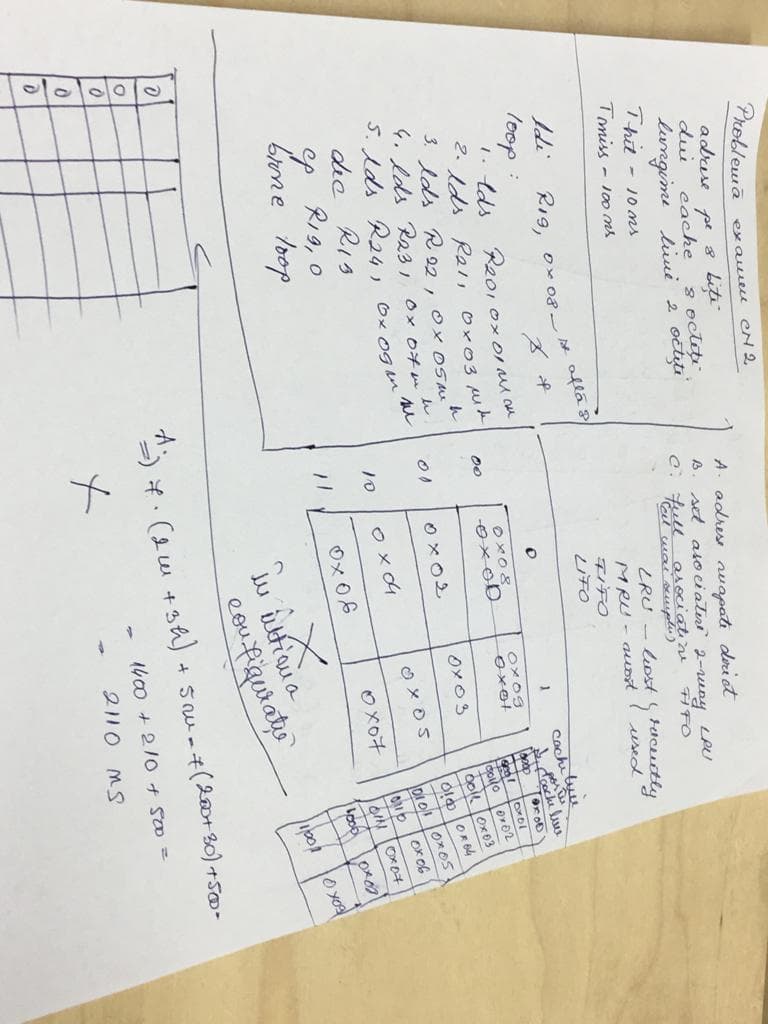 Problemă examen CN2
adrese pe 8 biți
dim cache 8 octeți
lungime linie 2 octeți
Thit - 10 ns
Tmiss - 100 ns
A. adrese mapate direct
B. set asociative 2-way LRU
C. full asociative FIFO
(cel mai simplu)
LRU - least } recently
MRU - most } used
FIFO
LIFO
ldi R19, 0x08 - se află 8
loop :
1. lds R20, 0x01 m m
2. lds R21, 0x03 m h
3. lds R22, 0x05 m h
4. lds R23, 0x07 m h
5. lds R24, 0x09 m m
dec R19
cp R19, 0
brne loop
0 1
00 0x08 0x09
0x00 0x01
01 0x02 0x03
10 0x04 0x05
11 0x06 0x07
În ultima
configurație
cache linie
cache linie
0000 0x00
0001 0x01
0010 0x02
0011 0x03
0100 0x04
0101 0x05
0110 0x06
0111 0x07
1000 0x08
1001 0x09
0
0
0
0
0
A. => 7 · (2m + 3h) + 5m = 7(200+30) + 500 =
= 1400 + 210 + 500 =
= 2110 ns